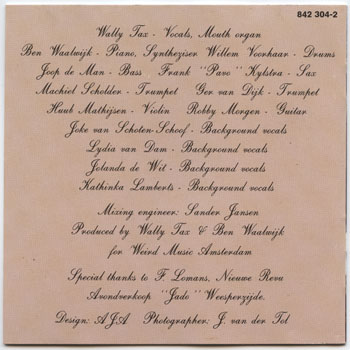 842 304-2
Wally Tax - Vocals, Mouth organ
Ben Waatwijk - Piano, Syntheziser Willem Voorhaar - Drums
Joop de Man - Bass Frank "Pavo" Kylstra - Sax
Machiel Scholder - Trumpet Ger van Dijk - Trumpet
Huub Mathijsen - Violin Robby Morgen - Guitar
Joke van Schoten-Schoof - Background vocals
Lydia van Dam - Background vocals
Jolanda de Wit - Background vocals
Kathinka Lamberts - Background vocals
Mixing engineer: Sander Jansen
Produced by Wally Tax & Ben Waatwijk
for Weird Music Amsterdam
Special thanks to F. Lomans, Nieuwe Revu
Avondverkoop "Jado" Weesperzijde.
Design: AJA Photographer: J. van der Tol